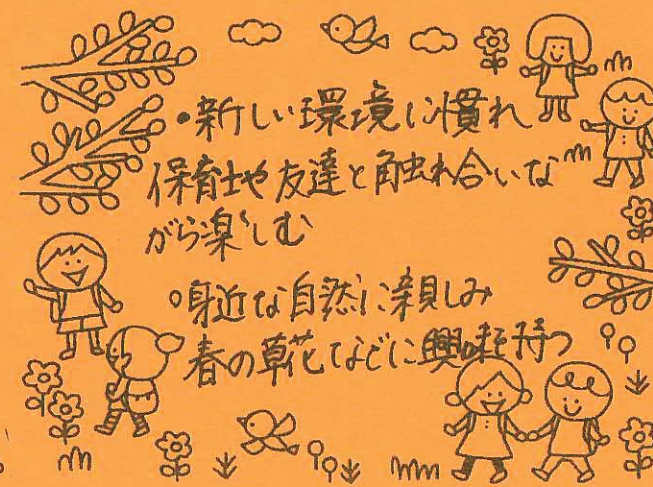 ・新しい環境に慣れ
保育士や友達と触れ合いな
がら楽しむ
・身近な自然に親しみ
春の草花などに興味を持つ